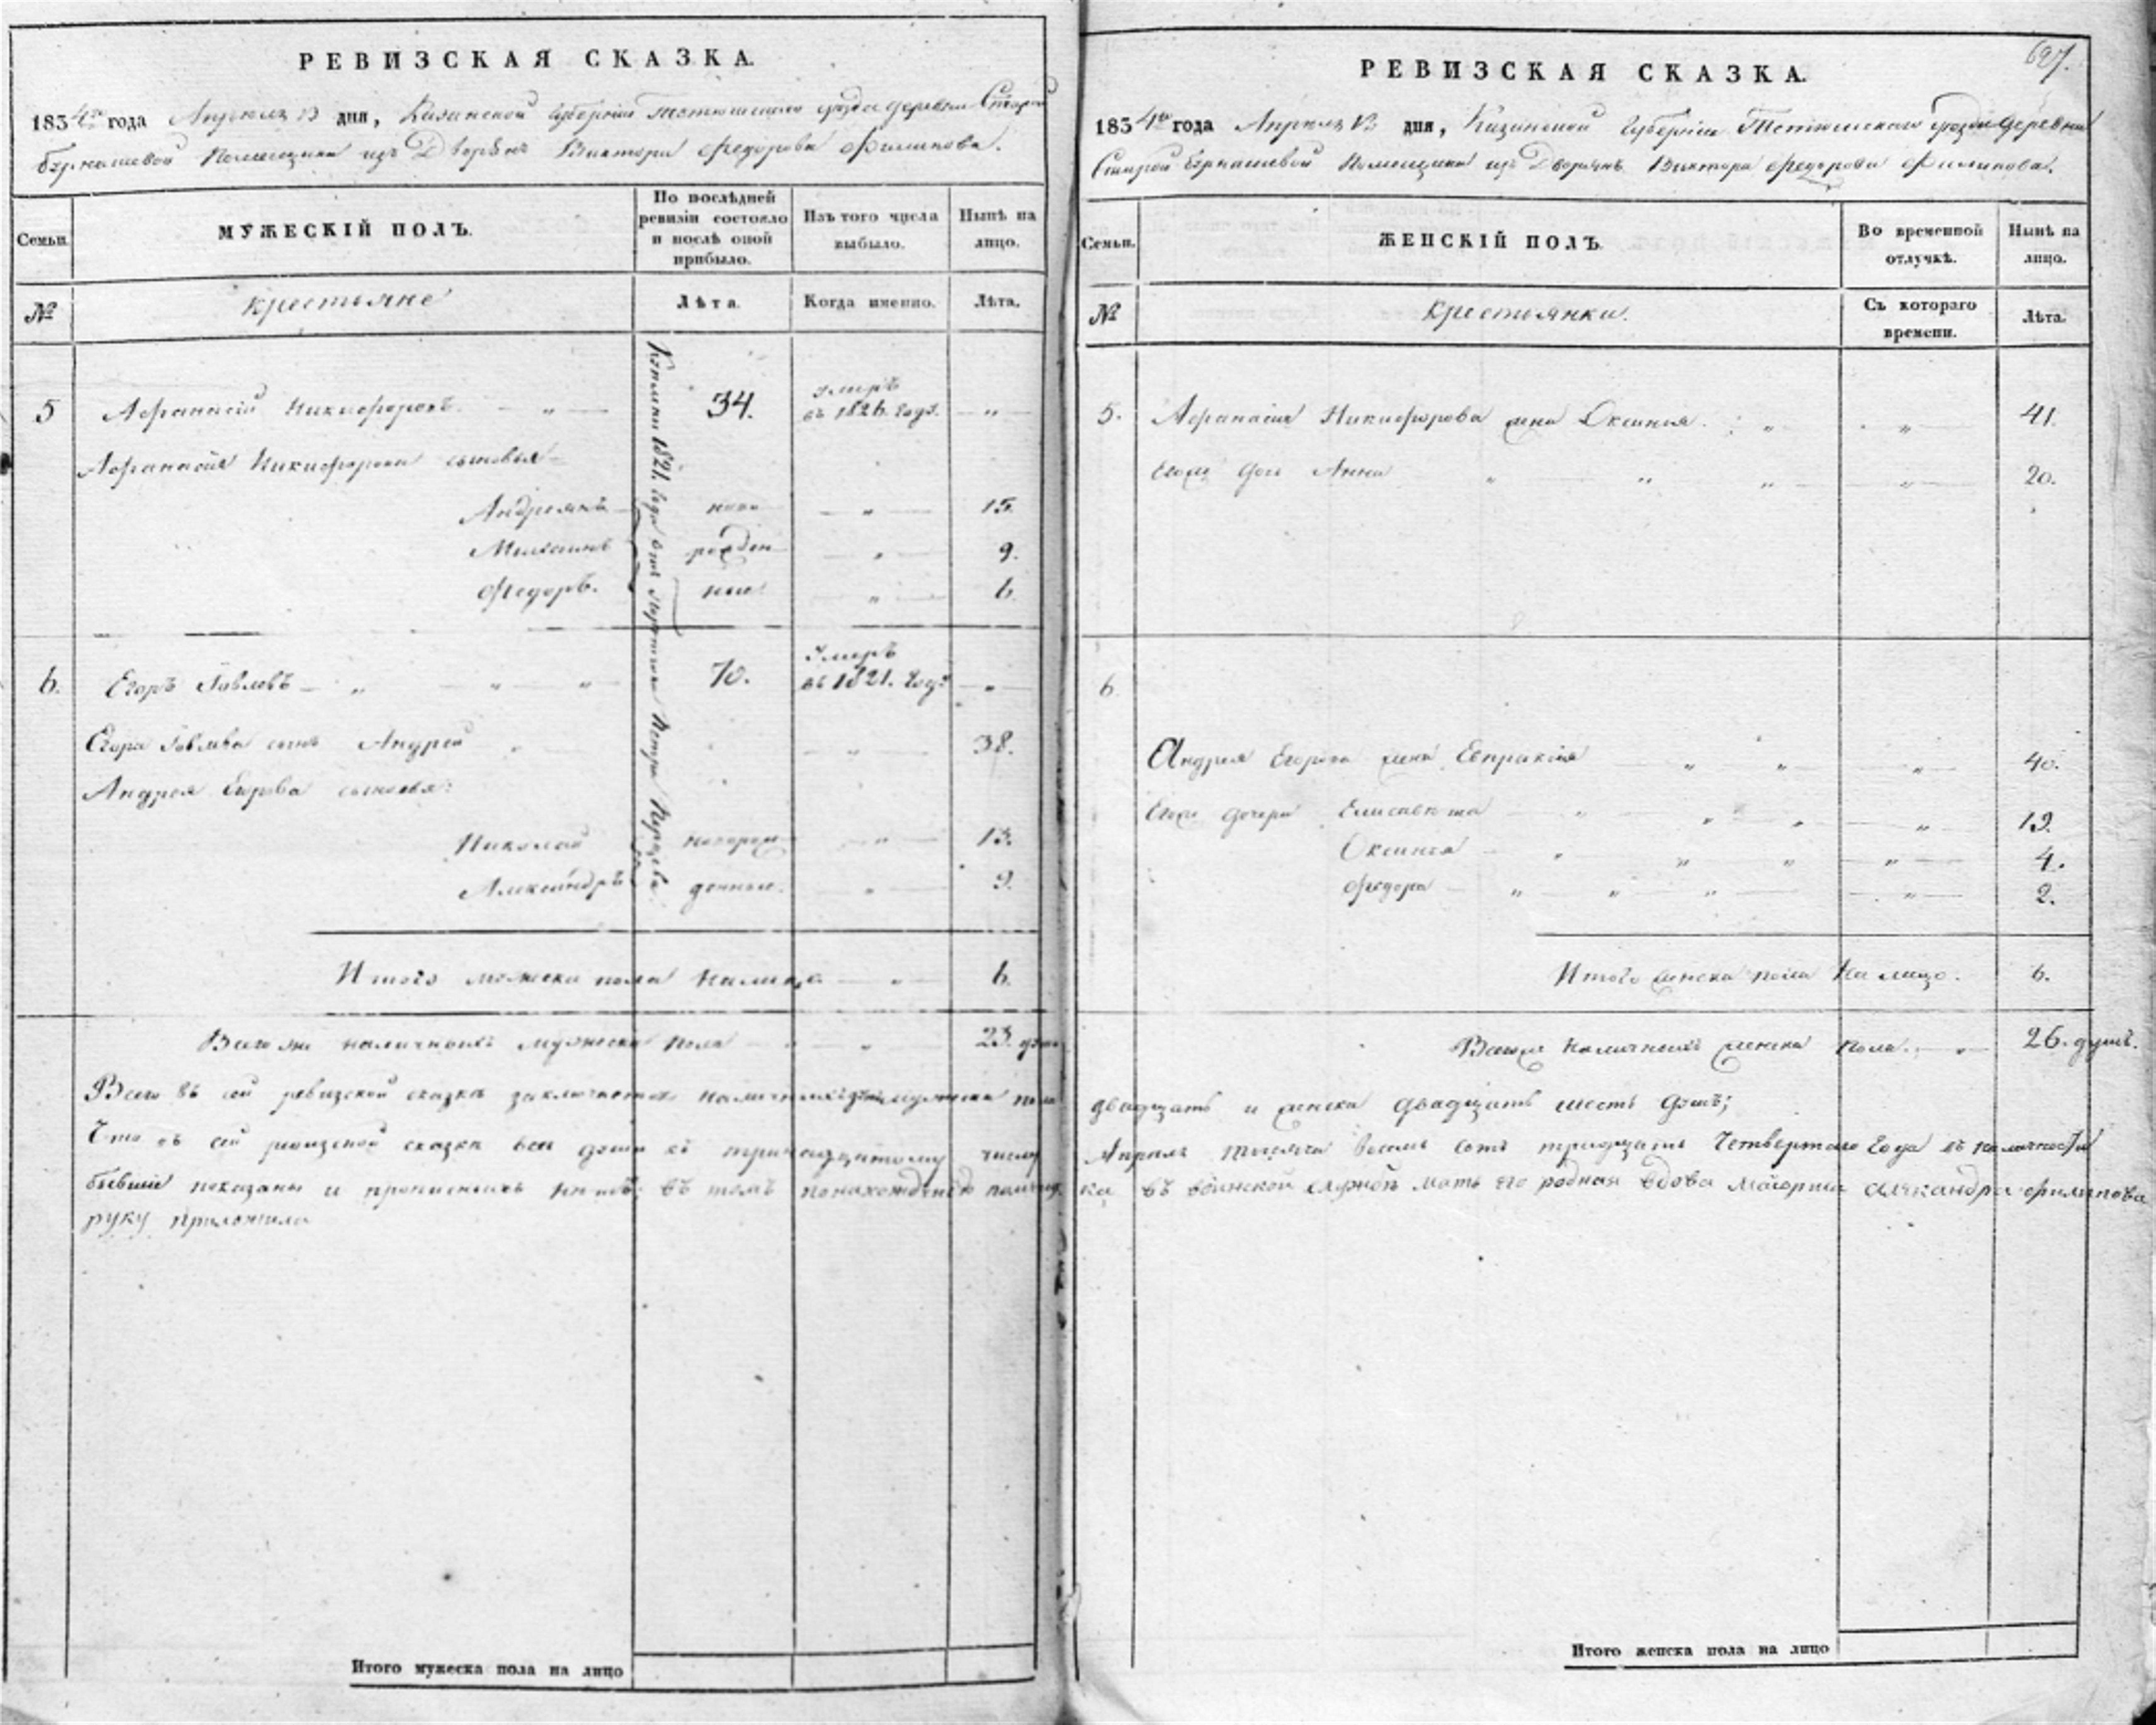 РЕВИЗСКАЯ СКАЗКА.
1834го года Апреля 13 дня, Казанской Губерніи Тетюшскаго уезда деревни Старой
Бурнашевой Помещика изъ Дворянъ Виктора Федорова Филипова.
Семьи.
МУЖЕСКІЙ ПОЛЪ.
По послѣдней ревизіи состояло и послѣ оной прибыло.
Изъ того числа выбыло.
Нынѣ на лицо.
№
крестьяне
Лѣта.
Когда именно.
Лѣта.
5 Афанасій Никифоровъ. — „ — 34. умеръ въ 1826. году. — „ —
Афанасія Никифорова сыновья
Андреянъ ново — „ — 15.
рожден — „ — 9.
Федоръ. ные — „ — 6.
Куплены 1821. года Петра
6. Егоръ Павловъ — „ — „ — „ 70. Умеръ въ 1821. году — „ —
Егора Павлова сынъ Андрей „ — „ — 38.
Андрея Егорова сыновья:
Николай новорож — „ — 13.
Александръ денные. — „ — 9.
Итого мужеска пола налицо — „ — 6.
Всего же наличныхъ мужеска пола — „ — „ 23. душ
Всего въ сей ревизской сказке заключается наличныхъ мужеска пола
Что въ сей ревизской сказке все души къ тринадцатому числу
бывшие показаны и прописныхъ нетъ: въ томъ помещи
руку приложила
РЕВИЗСКАЯ СКАЗКА.
627.
1834го года Апреля 13 дня, Казанской Губерніи Тетюшскаго уезда деревни
Старой Бурнашевой Помещика изъ Дворянъ Виктора Федорова Филипова.
Семьи.
ЖЕНСКІЙ ПОЛЪ.
Во временной отлучкѣ.
Нынѣ на лицо.
№
крестьянки.
Съ котораго времени.
Лѣта.
5. Афанасія Никифорова жена Оксинья. „ „ 41.
Егожъ дочь Анна „ „ „ — „ — 20.
6.
Андрея Егорова жена Евпраксія „ „ — „ — 40.
Егожъ дочери Елисавета — „ „ „ — „ — 19.
Оксинья — „ „ „ — „ — 4.
Федора — „ „ „ — „ — 2.
Итого женска пола на лицо. 6.
Всего наличныхъ женска пола. — „ — 26. душъ.
двадцать и женска двадцать шесть душъ;
Апреля тысяча восемь сотъ тридцать Четвертаго Года въ наличности
ка въ воинской службе мать его родная вдова Маіорша Александра Филипова
Итого мужеска пола на лицо
Итого женска пола на лицо